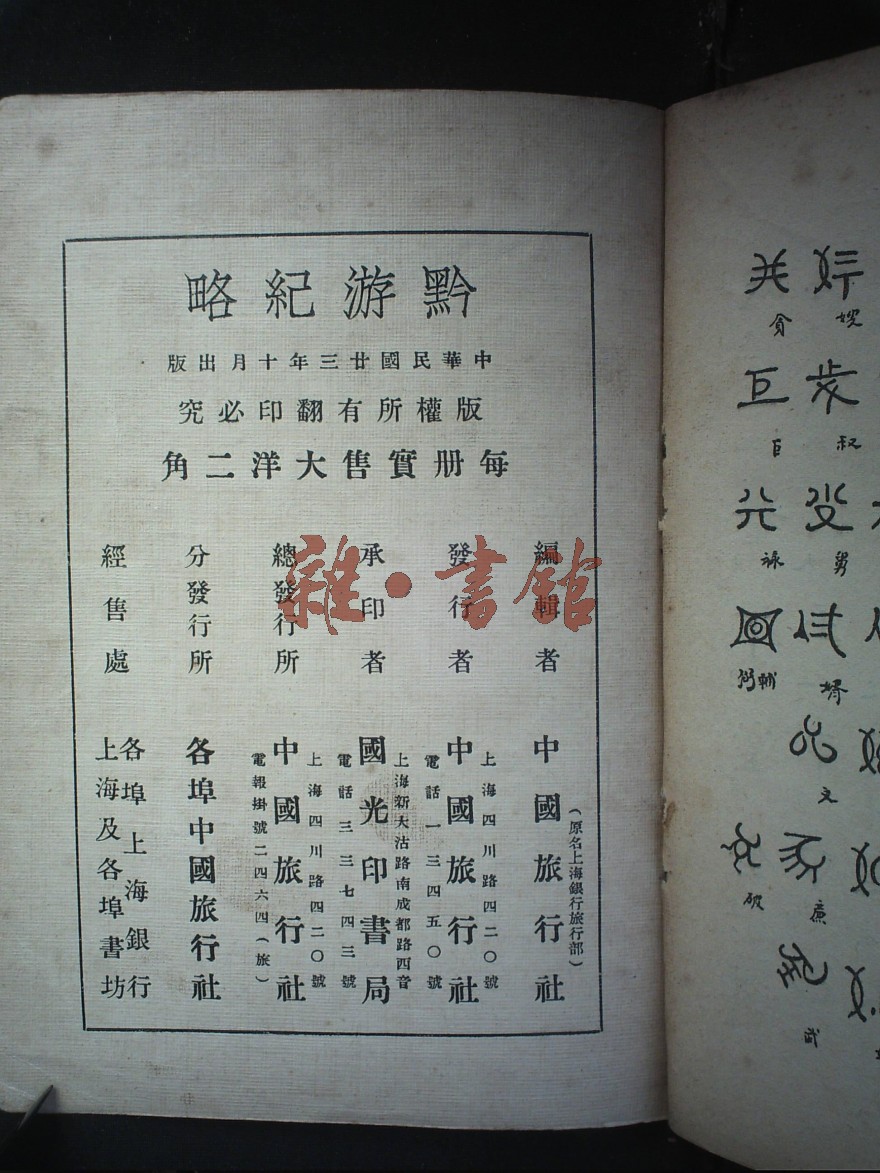 黔游紀略
中華民國廿三年十月出版
版權所有翻印必究
每册實售大洋二角
編輯者
中國旅行社
(原名上海銀行旅行部)
發行者
中國旅行社
上海四川路四二〇號
電話一三四五〇號
承印者
國光印書局
上海新大沽路南成都路西首
電話三三七四三號
總發行所
中國旅行社
上海四川路四二〇號
電報掛號二四六四(旅)
分發行所
各埠中國旅行社
經售處
各埠上海銀行
上海及各埠書坊
雜·書館
叔
男
壻
文
廉
武
貪
巨
祿
輔
弼
破